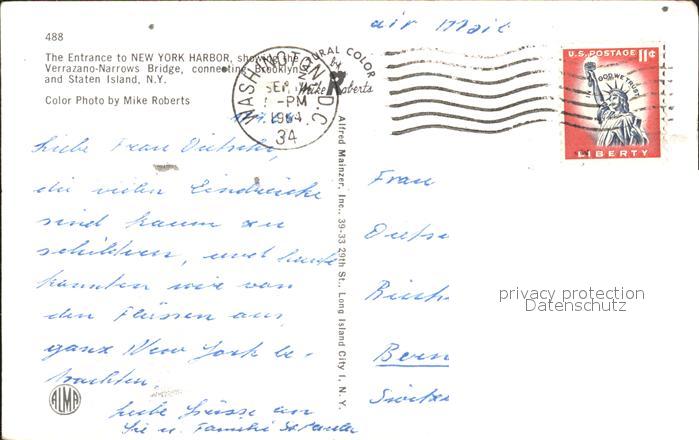 488
air Mail
The Entrance to NEW YORK HARBOR, showing the
Verrazano-Narrows Bridge, connecting Brooklyn
and Staten Island, N.Y.
Color Photo by Mike Roberts
NATURAL COLOR
by
Mike Roberts
WASHINGTON D.C.
SEP
-PM
1964
34
U.S. POSTAGE 11¢
IN GOD WE TRUST
LIBERTY
Alfred Mainzer, Inc., 39-33 29th St., Long Island City 1, N. Y.
liebe Frau
die vielen Eindrücke
sind kaum zu
schildern, und heute
konnten wir von
den Flüssen aus
ganz New York be-
trachten.
liebe Grüsse an
Sie u. Familie
Frau
Bern
privacy protection
Datenschutz
ALMA